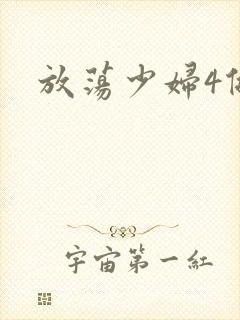 放蕩少婦4
宇宙第一紅